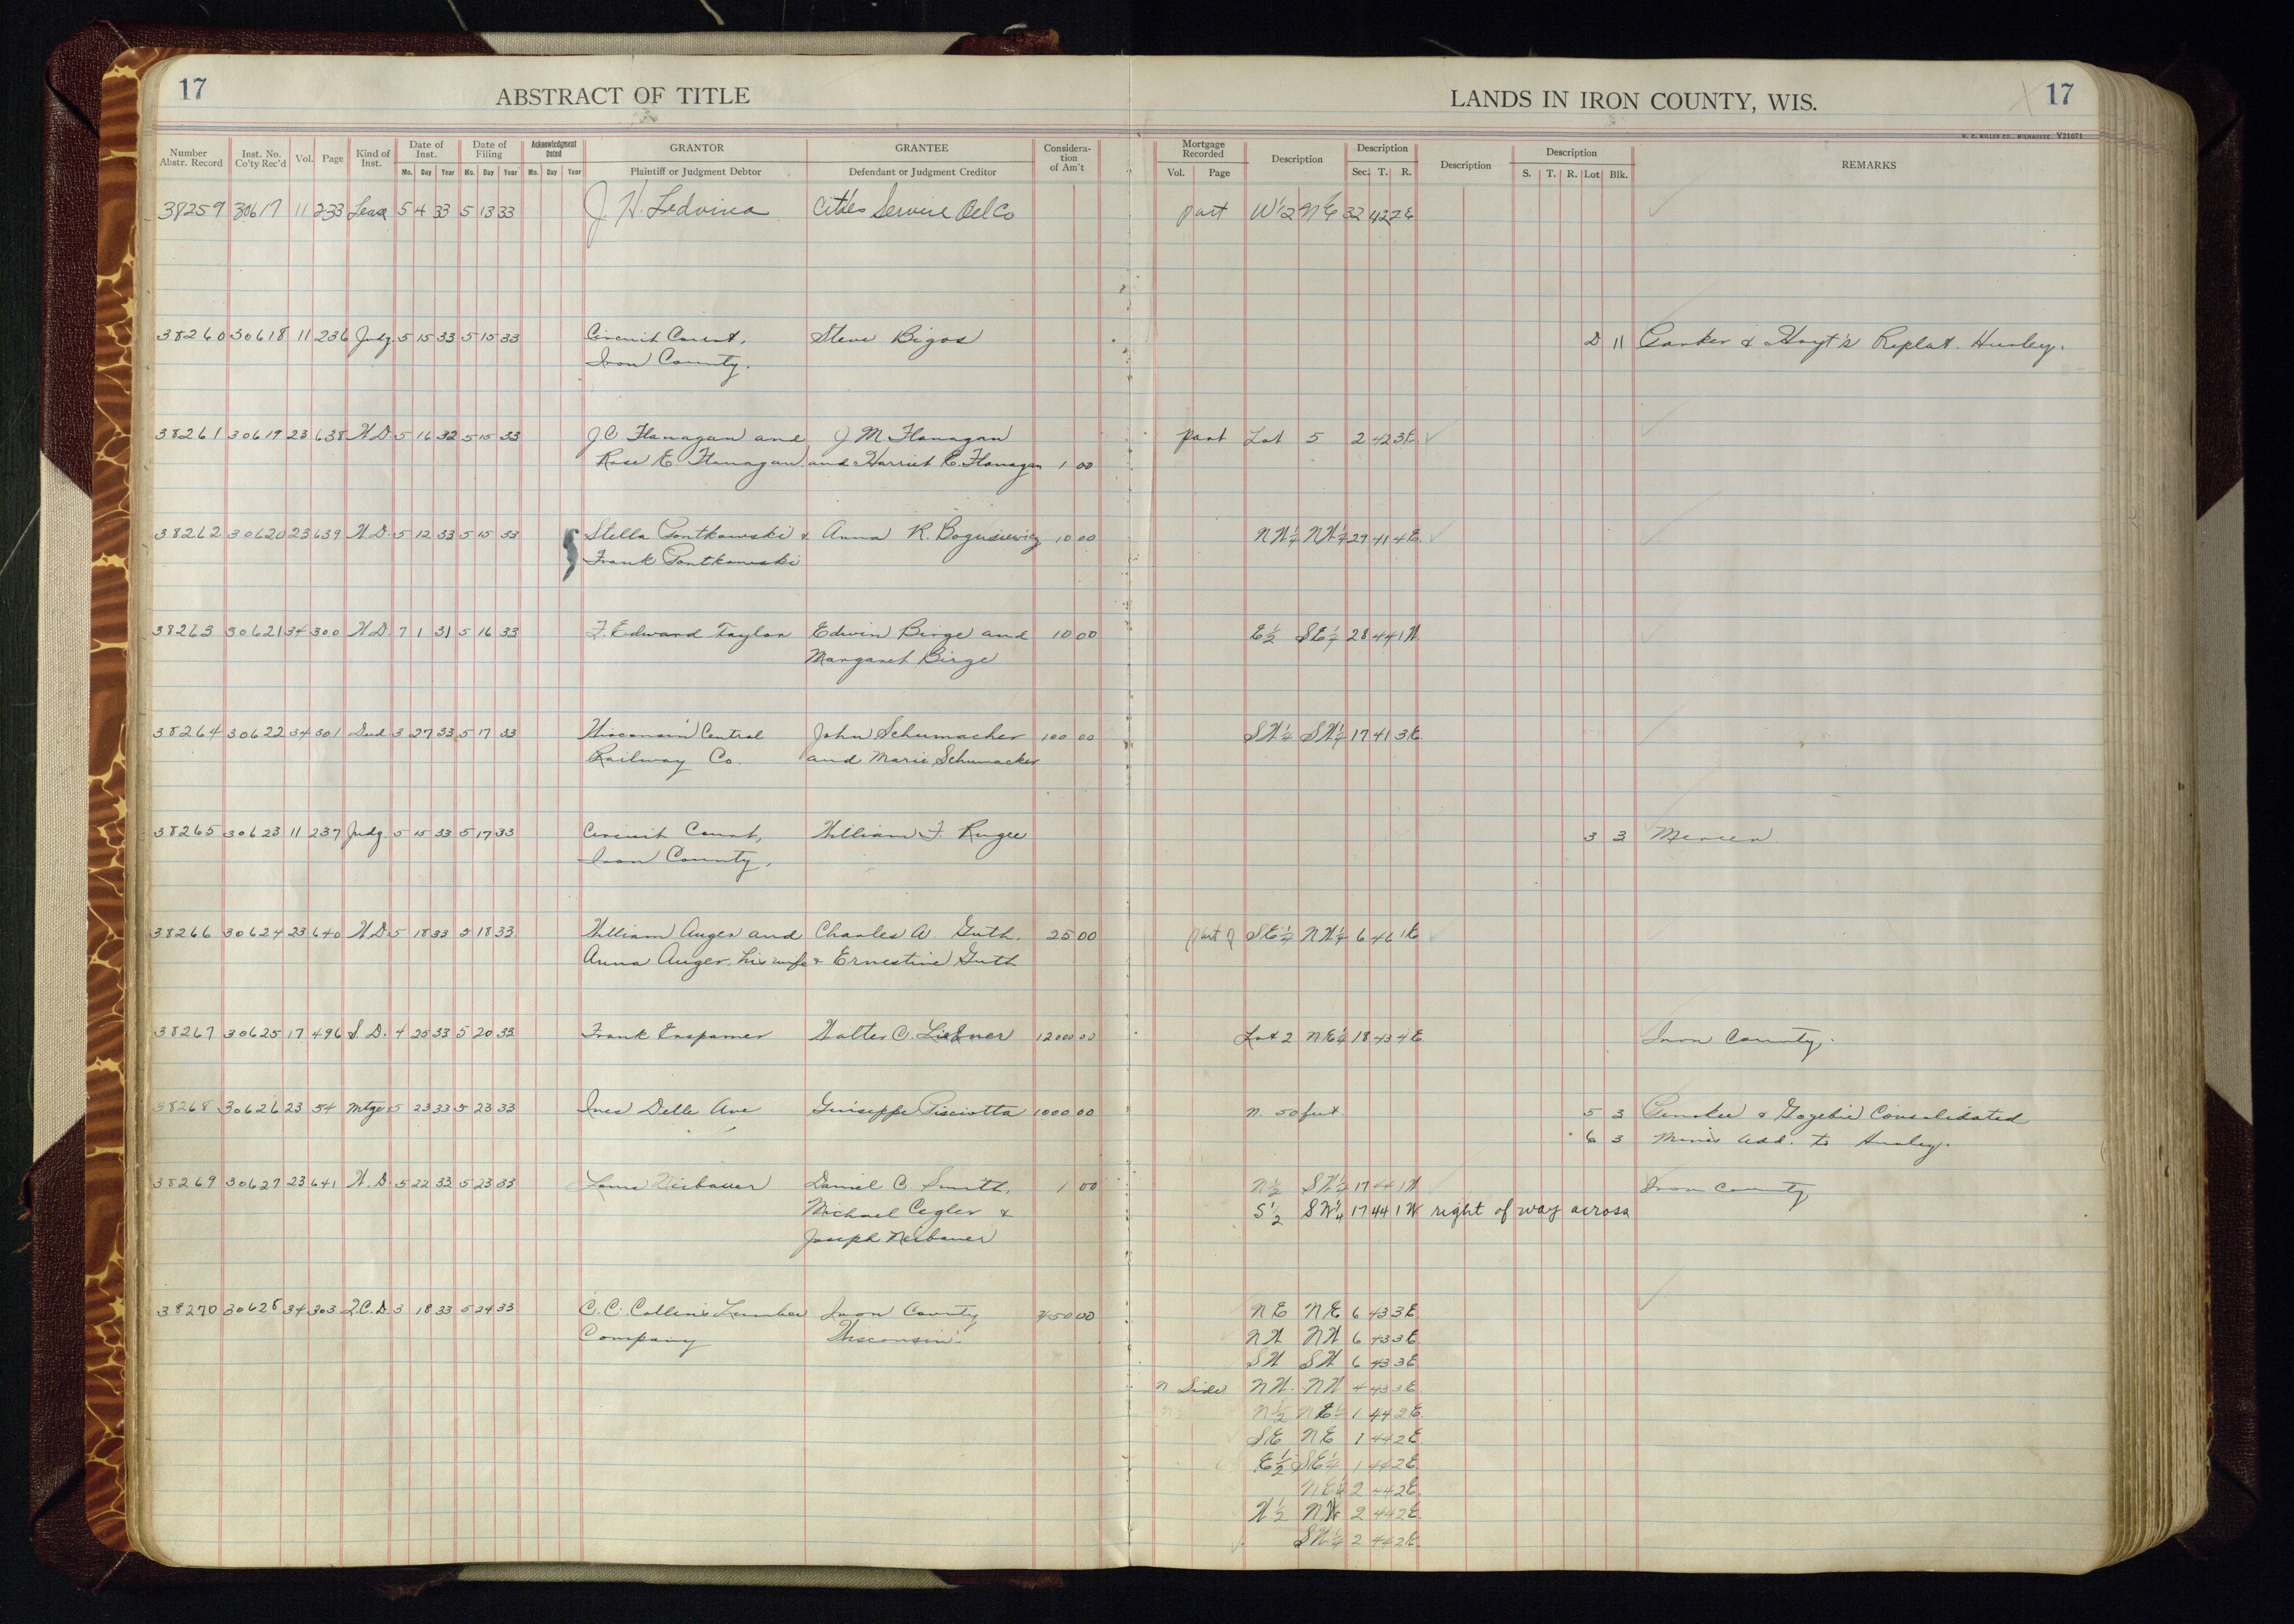 17 ABSTRACT OF TITLE LANDS IN IRON COUNTY, WIS. 17
H. C. MILLER CO., MILWAUKEE Y21671
Number Abstr. Record Inst. No. Co'ty Rec'd Vol. Page Kind of Inst. Date of Inst. Mo. Day Year Date of Filing Mo. Day Year Acknowledgment Dated Mo. Day Year GRANTOR Plaintiff or Judgment Debtor GRANTEE Defendant or Judgment Creditor Considera-tion of Am't Mortgage Recorded Vol. Page Description Description Sec. T. R. Description Description S. T. R. Lot Blk. REMARKS
38259 30617 11 233 Lease 5 4 33 5 13 33 J. H. Ledvina Cities Service Oil Co part W 1/2 NE 32 42 2E
38260 30618 11 236 Judg. 5 15 33 5 15 33 Circuit Court, Steve Bigos D 11 Parker & Hoyt's Replat. Hurley.
Iron County.
38261 30619 23 638 W D. 5 16 32 5 15 33 J C Flanagan and J M Flanagan part Lot 5 2 42 3E
Rose E. Flanagan and Harriet E. Flanagan 1 00
38262 30620 23 639 W D. 5 12 33 5 15 33 Stella Pontkowski & Anna R. Bogusiewicz 10 00 NW 1/4 NW 1/4 29 41 4E
Frank Pontkowski
38263 30621 34 300 W D. 7 1 31 5 16 33 F. Edward Taylor Edwin Birge and 10 00 E 1/2 SE 1/4 28 44 1W
Margaret Birge
38264 30622 34 301 Deed 3 27 33 5 17 33 Wisconsin Central John Schumacher 100 00 SW 1/4 SW 1/4 17 41 3E
Railway Co. and Marie Schumacher
38265 30623 11 237 Judg. 5 15 33 5 17 33 Circuit Court, William F. Rugee 3 3 Mercer
Iron County.
38266 30624 23 640 W D. 5 18 33 5 18 33 William Auger and Charles A. Guth. 25 00 part of SE 1/4 NW 1/4 6 46 1E
Anna Auger, his wife & Ernestine Guth
38267 30625 17 496 S. D. 4 25 33 5 20 33 Frank Enspamer Walter C. 12000 00 Lot 2 NE 1/4 18 43 4E Iron County.
38268 30626 23 54 Mtge 5 23 33 5 23 33 Ines Delle Ave Guiseppe Pisciotta 1000 00 N. 50 feet 5 3 Penokee & Gogebic Consolidated
6 3 Mines Add. to Hurley.
38269 30627 23 641 W. D. 5 22 33 5 23 33 Daniel C. Smith, 1 00 N 1/2 SW 1/4 17 44 1W Iron County
Michael Cegler & S 1/2 SW 1/4 17 44 1W right of way across
Joseph Neibauer
38270 30628 34 303 Q.C.D. 3 18 33 5 24 33 C. C. Collins Lumber Iron County 450 00 NE NE 6 43 3E
Company Wisconsin. NW NW 6 43 3E
SW SW 6 43 3E
N Side NW NW 4 43 3E
N 1/2 NE 1/4 1 44 2E
SE NE 1 44 2E
E 1/2 SE 1/4 1 44 2E
NE 1/4 2 44 2E
W 1/2 NW 2 44 2E
SW 1/4 2 44 2E